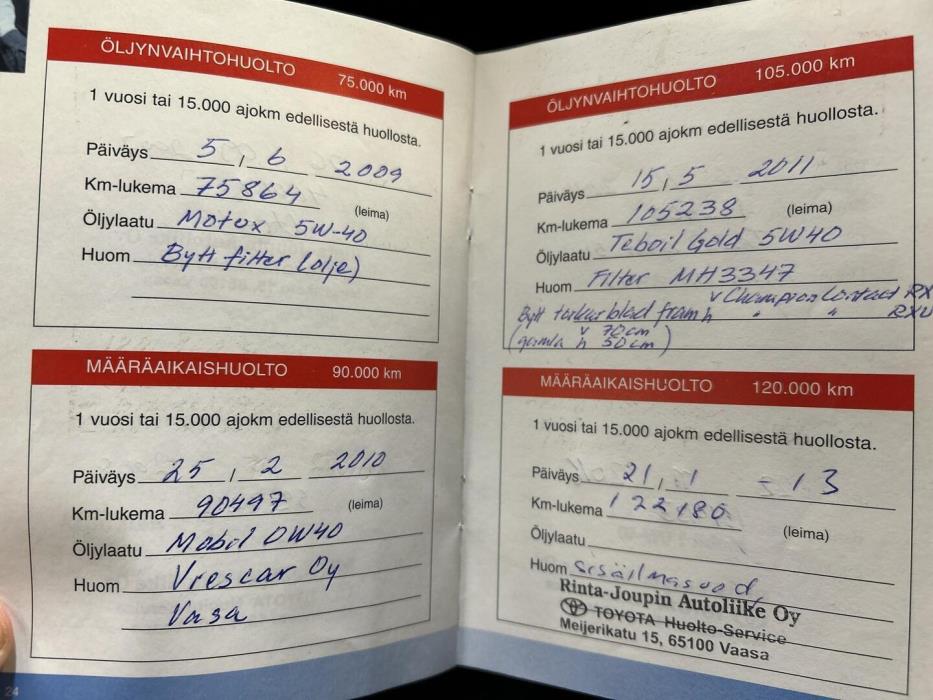 ÖLJYNVAIHTOHUOLTO 75.000 km
1 vuosi tai 15.000 ajokm edellisestä huollosta.
Päiväys 5 / 6 2009
Km-lukema 75864 (leima)
Öljylaatu Motox 5W-40
Huom Bytt filter (olje)
MÄÄRÄAIKAISHUOLTO 90.000 km
1 vuosi tai 15.000 ajokm edellisestä huollosta.
Päiväys 25 / 2 2010
Km-lukema 90497 (leima)
Öljylaatu Mobil 0W40
Huom Vrescar Oy
Vasa
24
ÖLJYNVAIHTOHUOLTO 105.000 km
1 vuosi tai 15.000 ajokm edellisestä huollosta.
Päiväys 15 / 5 2011
Km-lukema 105238 (leima)
Öljylaatu Teboil Gold 5W40
Huom Filter MH3347
Bytt torkarblad fram v Champion Contact RX
h " " RXU
(gamla v 70cm
h 50cm)
MÄÄRÄAIKAISHUOLTO 120.000 km
1 vuosi tai 15.000 ajokm edellisestä huollosta.
Päiväys 21 / 1 - 13
Km-lukema 122180 (leima)
Öljylaatu
Huom
Rinta-Joupin Autoliike Oy
TOYOTA Huolto-Service
Meijerikatu 15, 65100 Vaasa